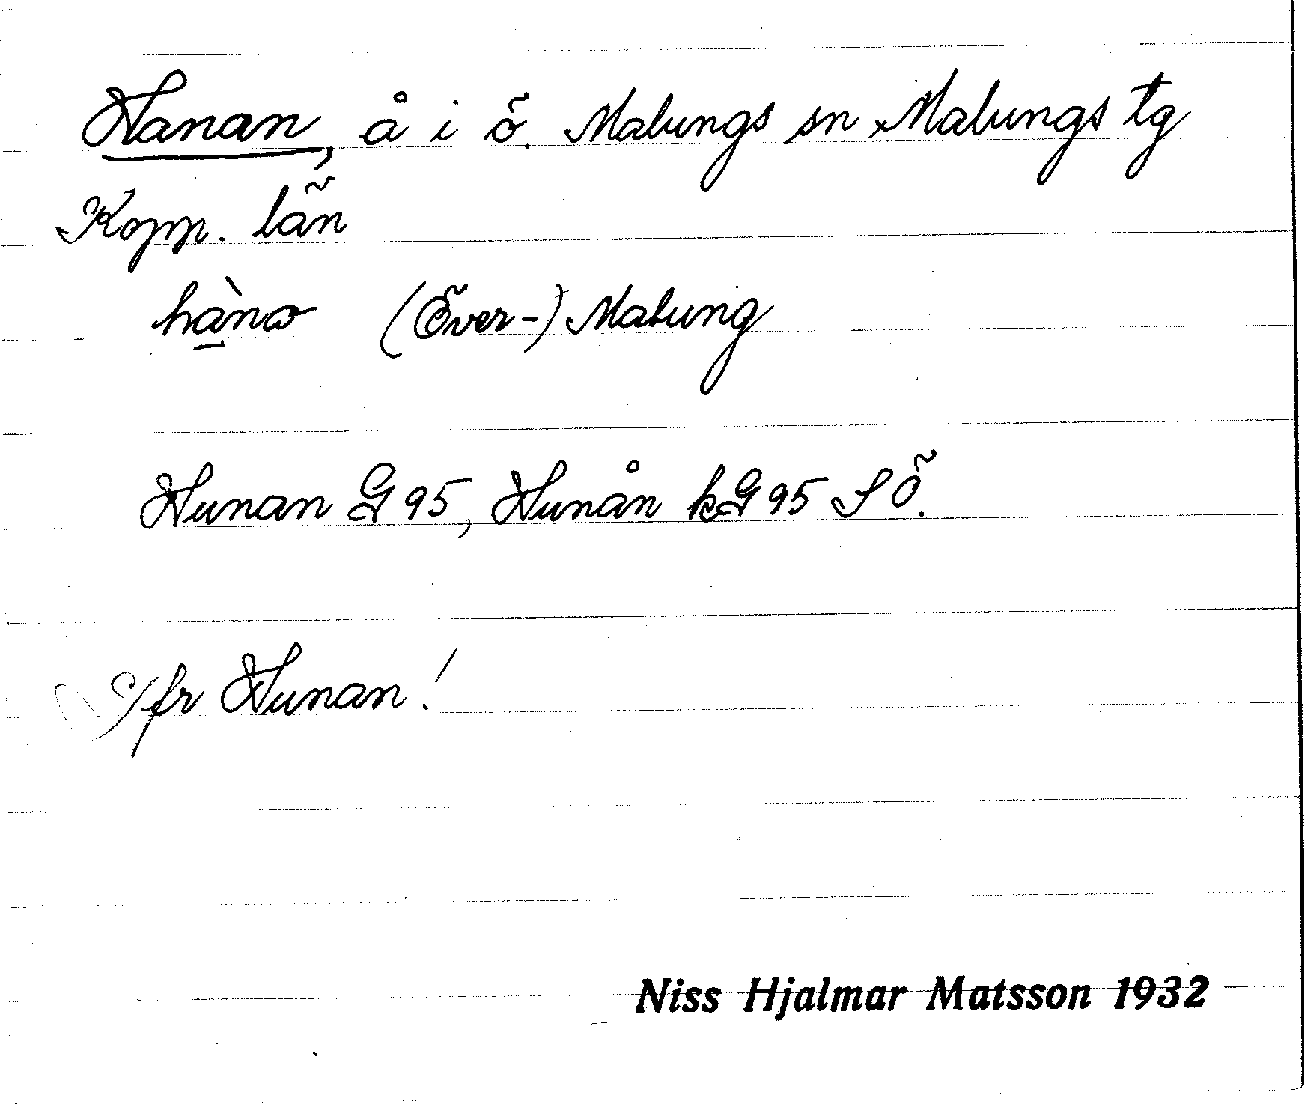 Hanan, å i ö. Malungs sn Malungs tg
Kopp. län
hàna (Över-) Malung
Hunan G 95, Hunån kG 95 S Ö.
Jfr Hunan!
Niss Hjalmar Matsson 1932